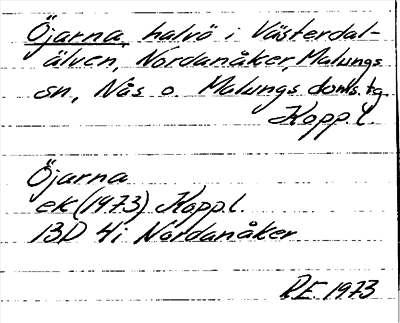 Öjarna, halvö i Västerdal-
älven, Nordanåker, Malungs
sn, Nås o. Malungs doms. tg
Kopp. l.
Öjarna
ek (1973) Kopp.l.
13D 4i Nordanåker
R.E. 1973